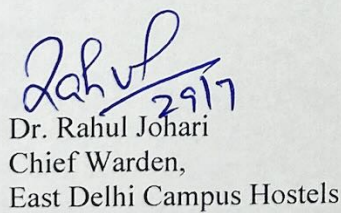 Rahul
29/7
Dr. Rahul Johari
Chief Warden,
East Delhi Campus Hostels